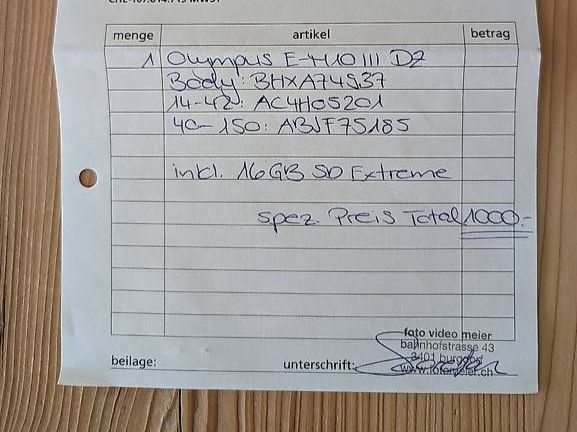 menge artikel betrag
1 Olympus E-M10 III DZ
Body: BHXA74537
14-42: AC4H05201
40-150: ABJF75185
inkl. 16GB SD Extreme
spez. Preis Total 1000.-
foto video meier
bahnhofstrasse 43
3401 burgdorf
beilage: unterschrift:
www.fotomeier.ch